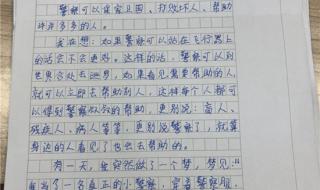 警察可以保家卫国、打败坏人、帮助
许许多多的人。
我在想：如果警察可以站在飞行器上
的话会不会更好。这样的话，警察可以到
世界各处去巡导，如果看见需要帮助的人，
就可以立即去帮助别人，这样每个人都可
以得到警察叔叔的帮助，更别说：盲人、
残疾人、病人等等，更别说警察了，就算
身边的人看见了也会去帮助的。
有一天，我突然做了一个梦，梦见
当了一名真正的小警察，穿着警察服